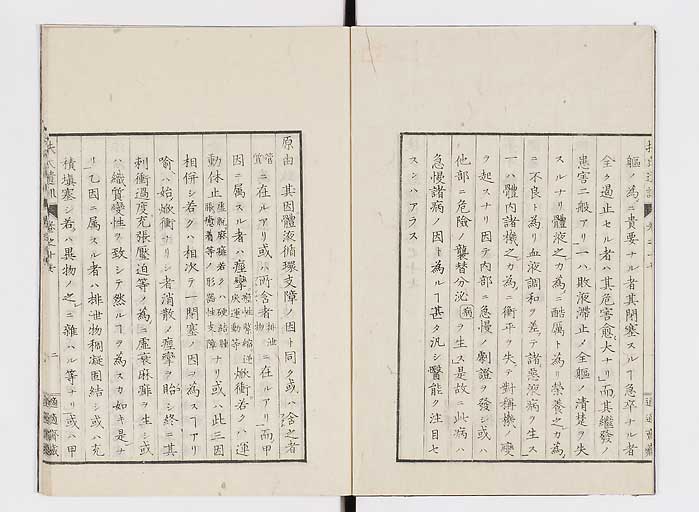 軀ノ為ニ貴要ナル者其閉塞スルヿ急卒ナル者
全ク遏止セル者ハ其危害愈大ナリ而其繼發ノ
患害二般アリ一ハ敗液滯止メ全軀ノ清楚ヲ失
スルナリ體液之カ為ニ酷厲ト為リ榮養之カ為
ニ不良ト為リ血液調和ヲ差テ諸惡液病ヲ生ス
一ハ體内諸機之カ為ニ衡平ヲ失テ對稱機ノ變
ヲ起スナリ因テ内部ニ急慢ノ劇證ヲ發シ或ハ
他部ニ危險ノ襲替分泌病ヲ生ス是故ニ此病ハ
急慢諸病ノ因ト為ルヿ甚タ汎シ醫能ク注目セ
スンハアラス
原由 其因體液循環支障ノ因ト同ク或ハ舍之者
管質ニ在ルアリ或ハ所舍者排泄物ニ在ルアリ而甲
因ニ属スル者ハ痙攣痙性整縮逆戾運動等焮衝若クハ運
動休止虚脱麻痺若クハ硬結腫脹癒着等ノ形器性支障ナリ或ハ此三因
相併シ若クハ相次テ一閉塞ノ因ヲ為スヿアリ
喩ハ始焮衝ナリシ者消散ノ痙攣ヲ貽シ終ニ其
刺衝過度充張壓迫等ノ為ニ虚衰麻痺ヲ生シ或
ハ織質變性ヲ致シテ然ルヿヲ為スカ如キ是ナ
リ乙因ニ属スル者ハ排泄物稠凝固結シ或ハ充
積塡塞シ若ハ異物ノ之ニ雜ハル等ナリ或ハ甲
二
適適齋藏